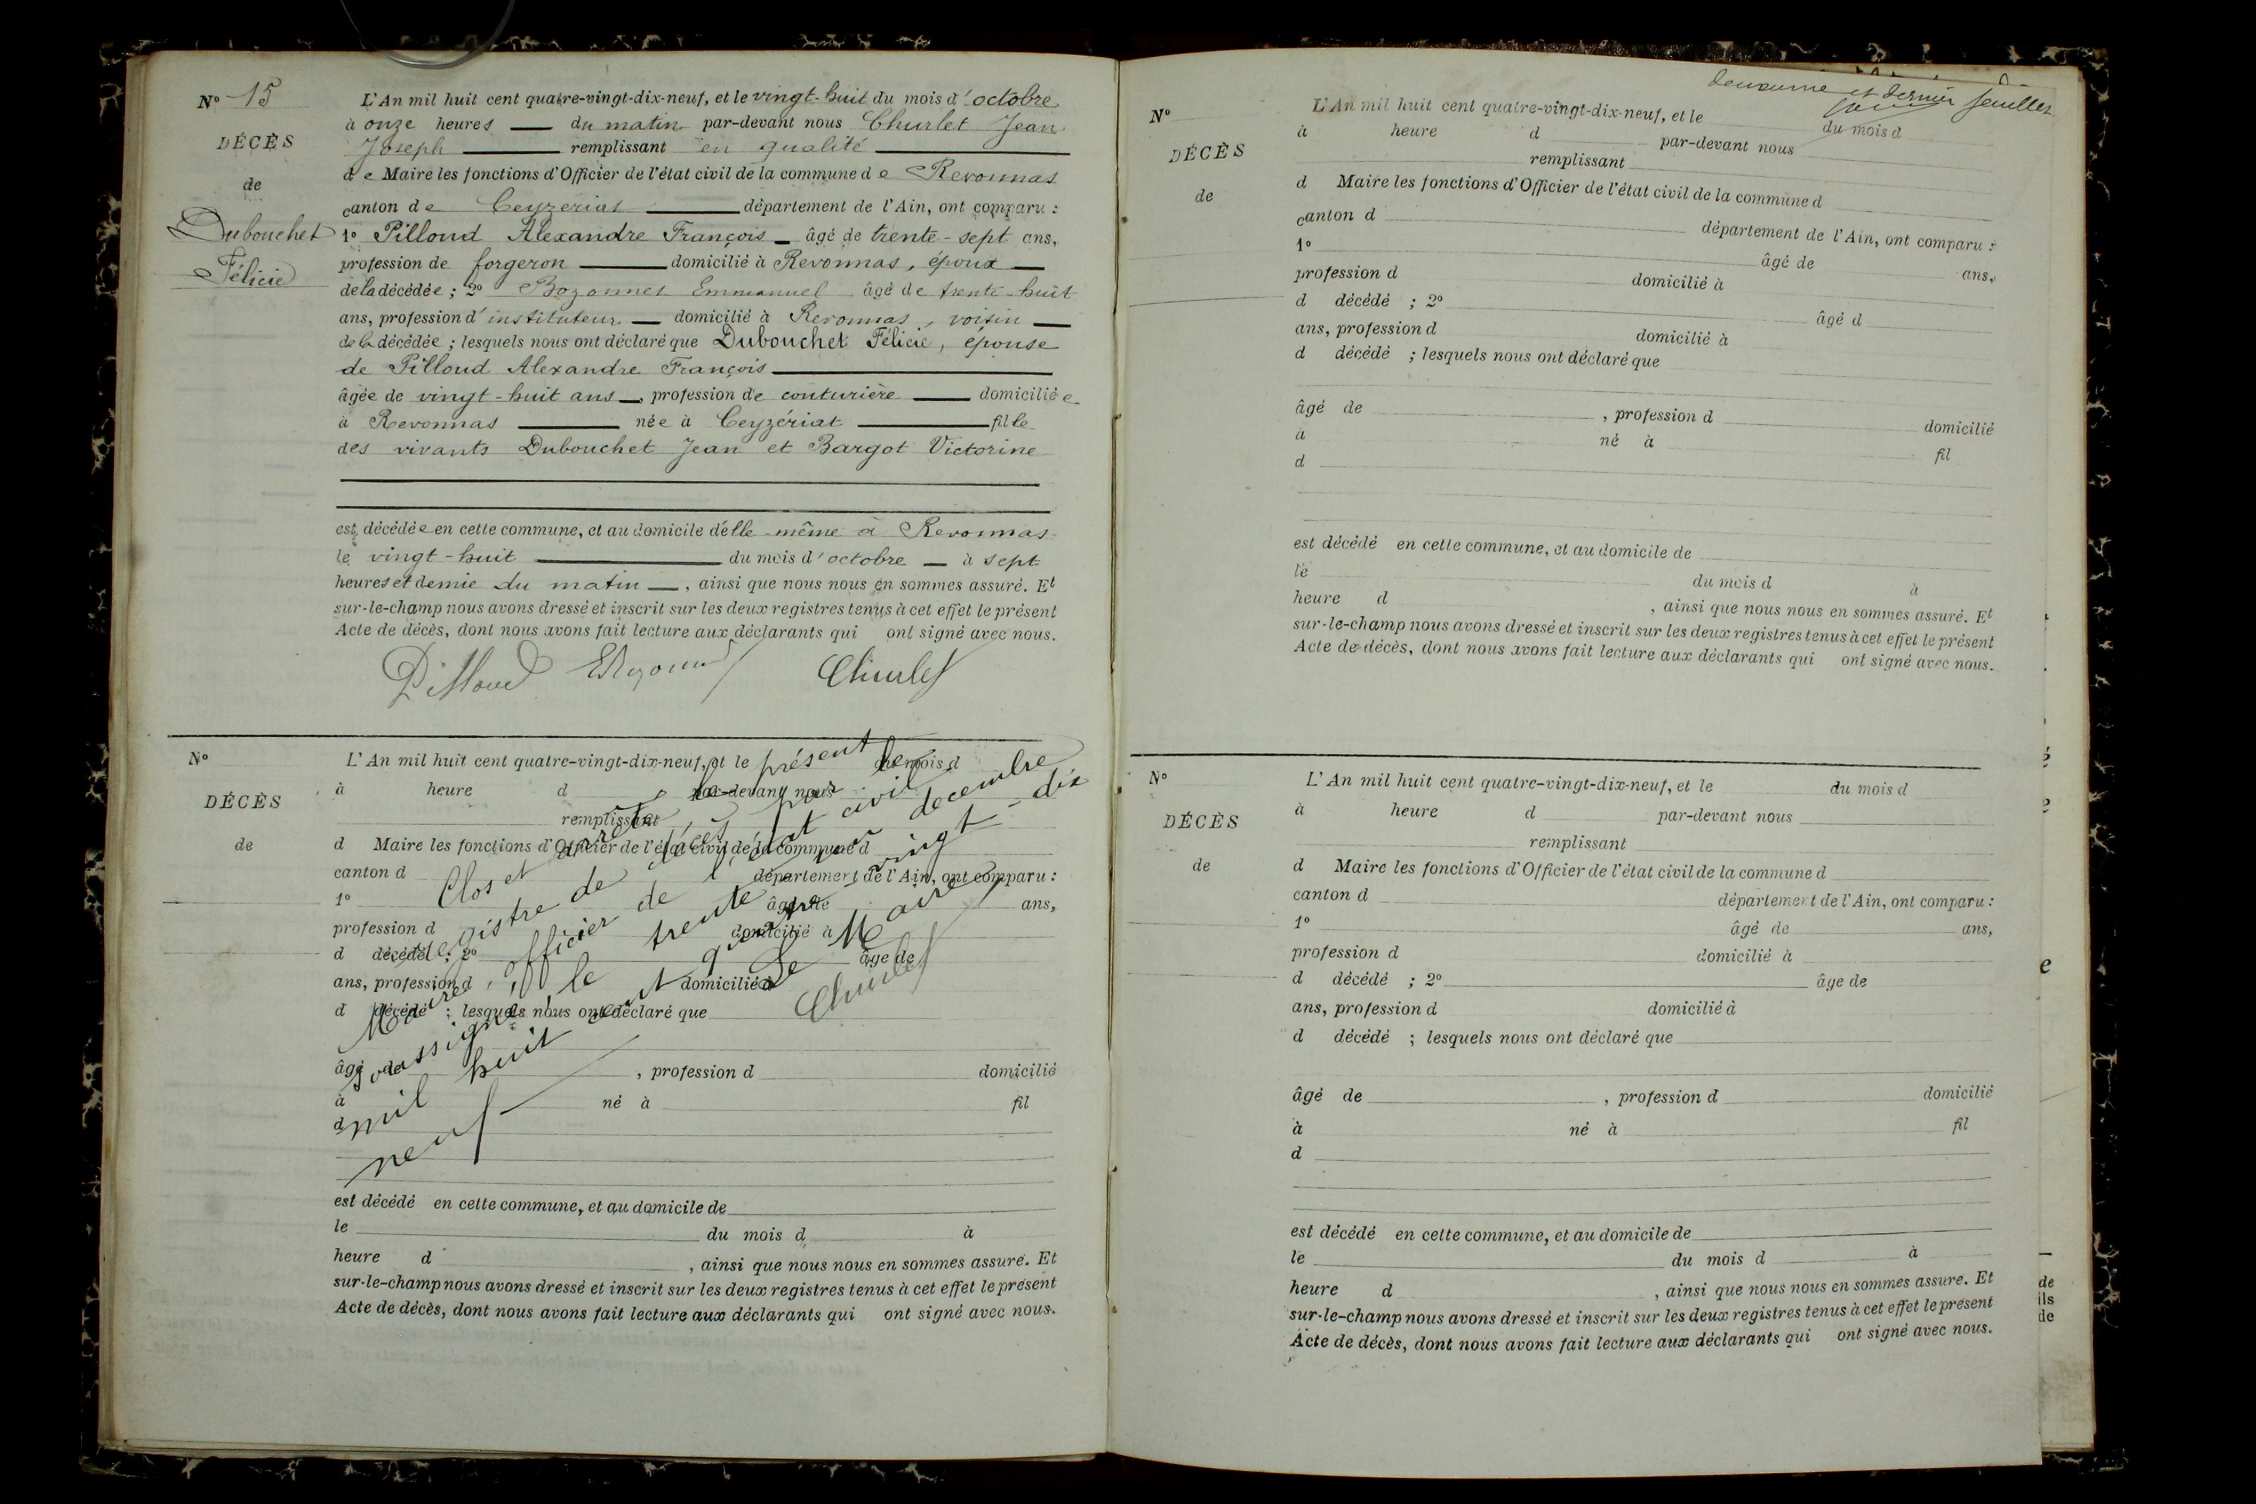 Nº 15
DÉCÈS
de
Dubouchet
Félicie
L'An mil huit cent quatre-vingt-dix-neuf, et le vingt-huit du mois d'octobre
à onze heures du matin par-devant nous Churlet Jean
Joseph remplissant en qualité
de Maire les fonctions d'Officier de l'état civil de la commune de Revonnas
canton de Ceyzeriat département de l'Ain, ont comparu :
1º Pilloud Alexandre François âgé de trente-sept ans,
profession de forgeron domicilié à Revonnas, époux
de la décédée ; 2º Bozonnet Emmanuel âgé de trente-huit
ans, profession d'instituteur domicilié à Revonnas, voisin
de la décédée ; lesquels nous ont déclaré que Dubouchet Félicie, épouse
de Pilloud Alexandre François
âgée de vingt-huit ans, profession de couturière domiciliée
à Revonnas née à Ceyzériat fille
des vivants Dubouchet Jean et Bargot Victorine
est décédée en cette commune, et au domicile d'elle-même à Revonnas
le vingt-huit du mois d'octobre à sept
heures et demie du matin, ainsi que nous nous en sommes assuré. Et
sur-le-champ nous avons dressé et inscrit sur les deux registres tenus à cet effet le présent
Acte de décès, dont nous avons fait lecture aux déclarants qui ont signé avec nous.
Pilloud EBozonnet Churlet
Nº
DÉCÈS
de
L'An mil huit cent quatre-vingt-dix-neuf, et le du mois d
à heure d par-devant nous
remplissant
d Maire les fonctions d'Officier de l'état civil de la commune d
canton d département de l'Ain, ont comparu :
1º âgé de ans,
profession d domicilié à
d décédé ; 2º âge de
ans, profession d domicilié à
d décédé ; lesquels nous ont déclaré que
âgé de , profession d domicilié
à né à fil
d
est décédé en cette commune, et au domicile de
le du mois d à
heure d , ainsi que nous nous en sommes assuré. Et
sur-le-champ nous avons dressé et inscrit sur les deux registres tenus à cet effet le présent
Acte de décès, dont nous avons fait lecture aux déclarants qui ont signé avec nous.
Clos et arrêté le présent
registre de décès par le
Maire, officier de l'état civil
soussigné, le trente un décembre
mil huit cent quatre vingt-dix
neuf
Le Maire
Churlet
et dernier feuillet
Nº
DÉCÈS
de
L'An mil huit cent quatre-vingt-dix-neuf, et le du mois d
à heure d par-devant nous
remplissant
d Maire les fonctions d'Officier de l'état civil de la commune d
canton d département de l'Ain, ont comparu :
1º âgé de ans,
profession d domicilié à
d décédé ; 2º âgé d
ans, profession d domicilié à
d décédé ; lesquels nous ont déclaré que
âgé de , profession d domicilié
à né à fil
d
est décédé en cette commune, et au domicile de
le du mois d à
heure d , ainsi que nous nous en sommes assuré. Et
sur-le-champ nous avons dressé et inscrit sur les deux registres tenus à cet effet le présent
Acte de décès, dont nous avons fait lecture aux déclarants qui ont signé avec nous.
Nº
DÉCÈS
de
L'An mil huit cent quatre-vingt-dix-neuf, et le du mois d
à heure d par-devant nous
remplissant
d Maire les fonctions d'Officier de l'état civil de la commune d
canton d département de l'Ain, ont comparu :
1º âgé de ans,
profession d domicilié à
d décédé ; 2º âge de
ans, profession d domicilié à
d décédé ; lesquels nous ont déclaré que
âgé de , profession d domicilié
à né à fil
d
est décédé en cette commune, et au domicile de
le du mois d à
heure d , ainsi que nous nous en sommes assuré. Et
sur-le-champ nous avons dressé et inscrit sur les deux registres tenus à cet effet le présent
Acte de décès, dont nous avons fait lecture aux déclarants qui ont signé avec nous.